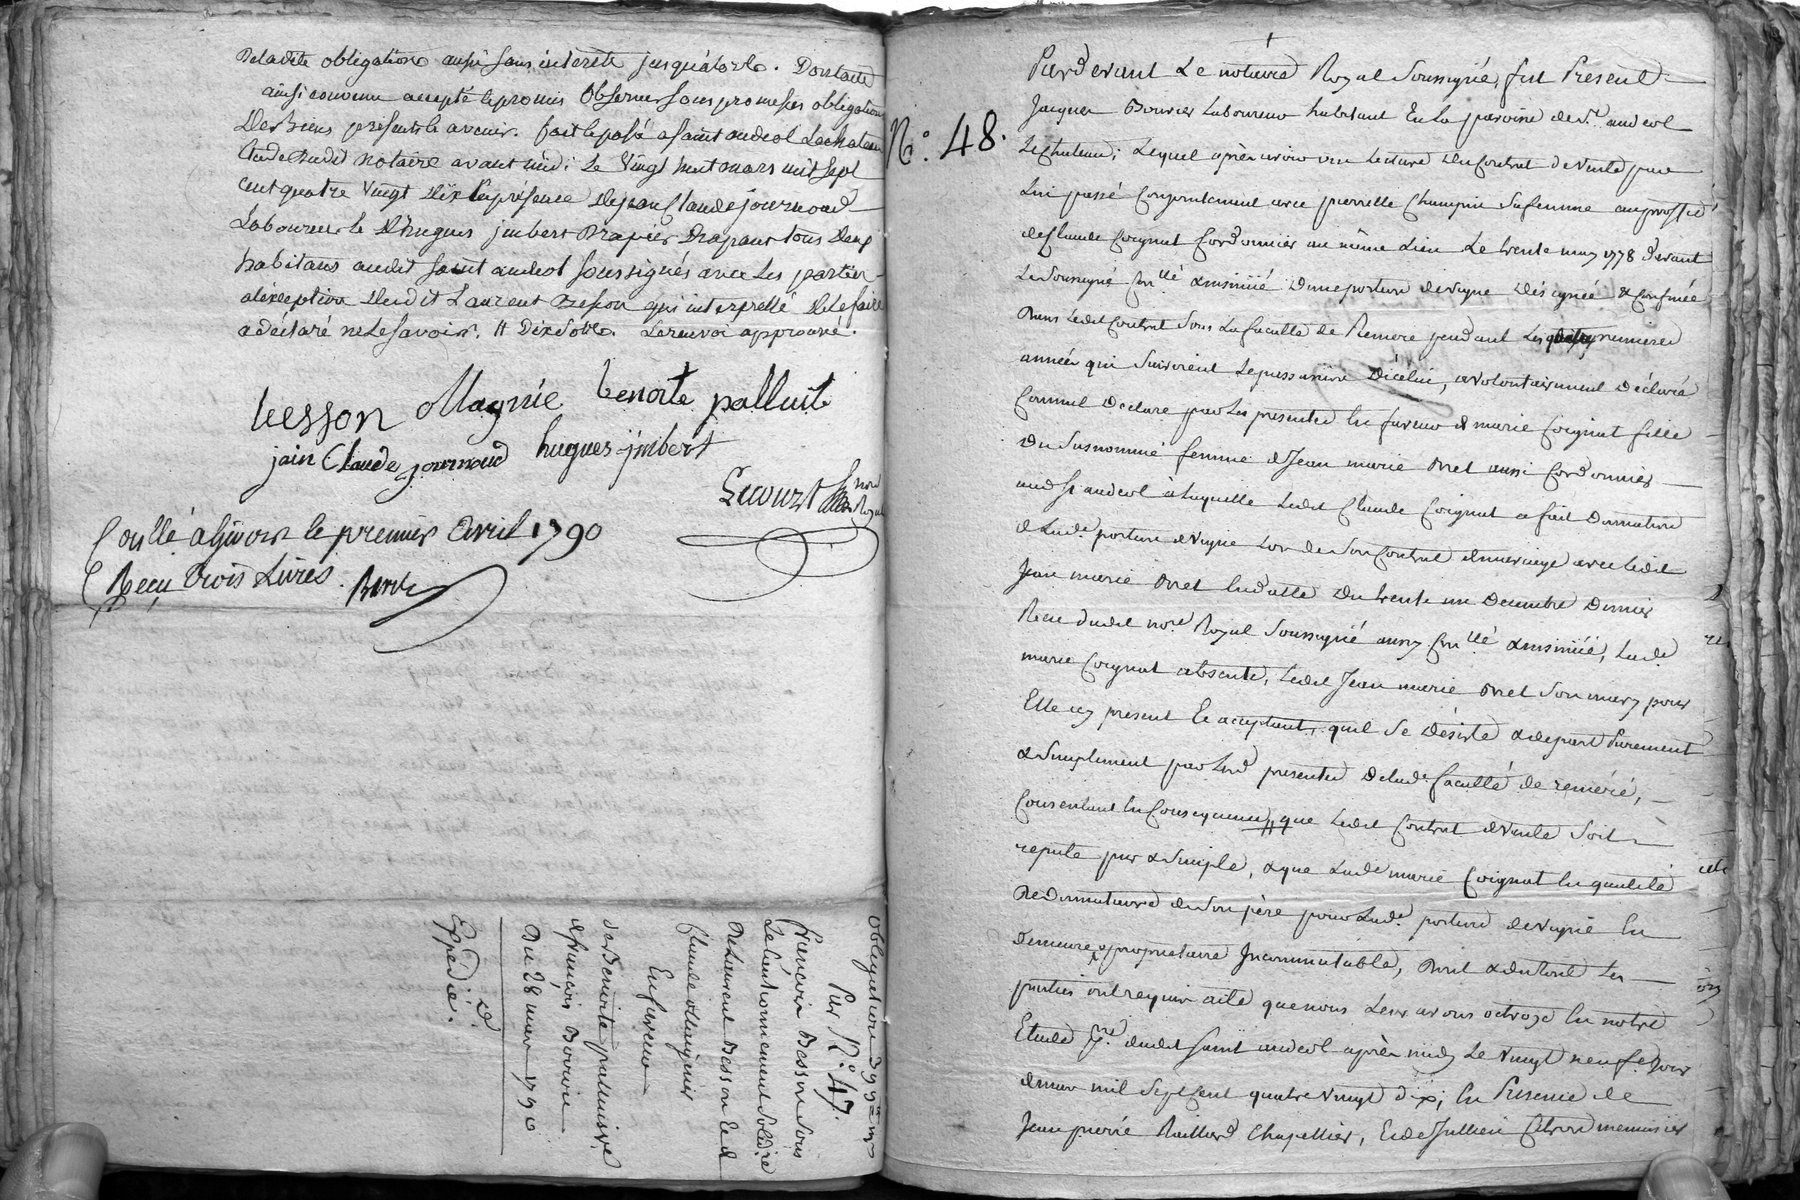 deladite obligation aussi sans interets jusqu'alors. Dont acte
ainsi convenu accepté et promis observer sous promesses obligation
des biens présents et avenir. fait et passé a saint andeol le chateau
Etude dudit notaire avant midi le vingt huit mars mil sept
cent quatre vingt dix En présence de jean Claude journoud
Laboureur et d'hugues jmbert drapier drapant tous deux
habitans audit saint andeol soussignés avec les parties
aléxception dudit Laurent Besson qui interpellé de le faire
a déclaré ne le savoir. # Dix sols. Le renvoi approuvé.
besson Magnié benoite palluit
jain Claude journoud hugues jmbert
nore Royal
Conllé a Givors le premier Avril 1790
Reçu trois Livres.
Obligation 399 ₶
Par N.o 47.
francois Besson sous
le Cautionnement solidre
de Laurent Besson et d
Claude Magnier
En faveur
de Benoite palluis ve
de françois Bouvier
Du 28 mars 1790
Expédié.
N.o 48.
Pardevant Le notaire Royal Soussigné, fut Present
Jacques Bouvier Laboureur habitant En la paroisse de St. andeol
Le Chateau; Lequel après avoir eu Lecture du Contrat de Vente par
Lui passé Conjointement avec pierrette Champin Sa femme au proffit
de Claude Coignat Cordonnier au même Lieu Le trente may 1778 devant
Le Soussigné Con.llé & insinüé d'une porture de vigne désignée & confinée
dans Ledit Contrat Sous La faculté de Remere pendant Les premieres
années qui Suivroient La passation d'icelui, a volontairement déclaré
Comme il déclare par Les presentes En faveur de marie Coignat fille
du Susnommé femme de Jean marie Bret aussi Cordonnier
aud. St. andeol à Laquelle Ledit Claude Coignat a fait donnation
de Lade. porture de vigne Lors de Son Contrat de mariage avec Ledit
Jean marie Bret En datte du trente un Decembre Dernier
Recu dudit nore. Royal Soussigné aussy Con.llé & insinüé, Lade.
marie Coignat absente, Ledit Jean marie Bret Son mary pour
Elle icy present Et acceptant, quil Se désiste & départ Purement
& Simplement par Les presentes de lade. faculté de reméré,
Consentant En Consequence que Ledit Contrat de Vente Soit
reputé pur & Simple, & que Lade. marie Coignat En qualité
de donnataire de Son père pour Lade. porture de vigne En
demeure propriétaire Incommutable, dont & du tout Les
parties ont requis acte que nous Leur avons octroyé En notre
Etude audit Saint andeol après midy Le vingt neuf. Jour
de mars mil Sept Cent quatre vingt dix; En Présence de
Jean pierre Chapellier, Et de Jullien menuisier